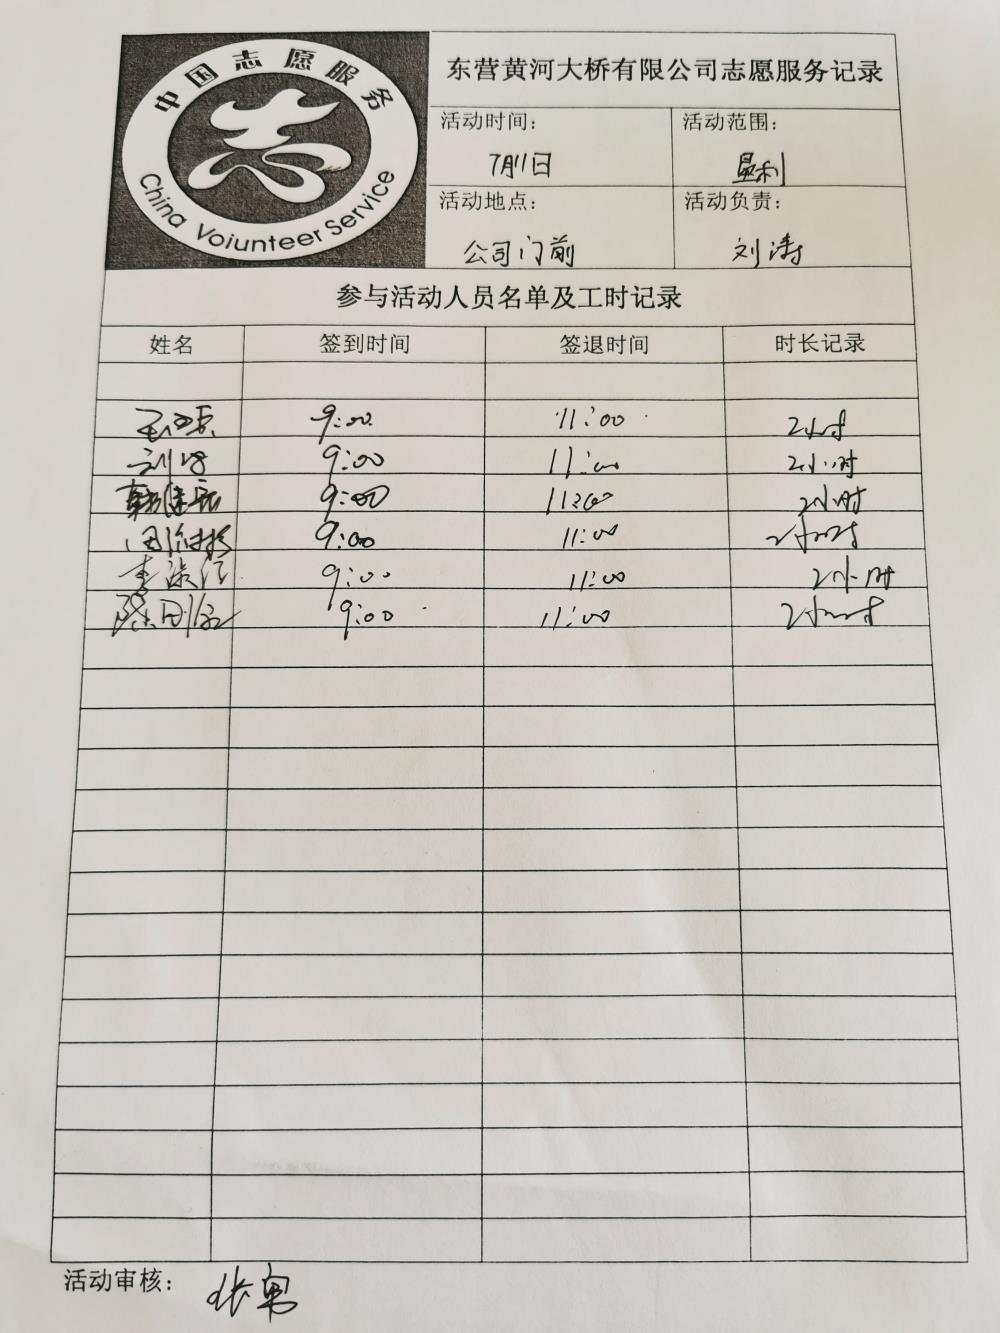 中国志愿服务
China Voiunteer Service
东营黄河大桥有限公司志愿服务记录
活动时间: 活动范围:
7月11日 垦利
活动地点: 活动负责:
公司门前 刘涛
参与活动人员名单及工时记录
姓名 签到时间 签退时间 时长记录
9:00 11:00 2小时
9:00 11:00 2小时
9:00 11:00 2小时
9:00 11:00 2小时
9:00 11:00 2小时
9:00 11:00 2小时
活动审核: 张